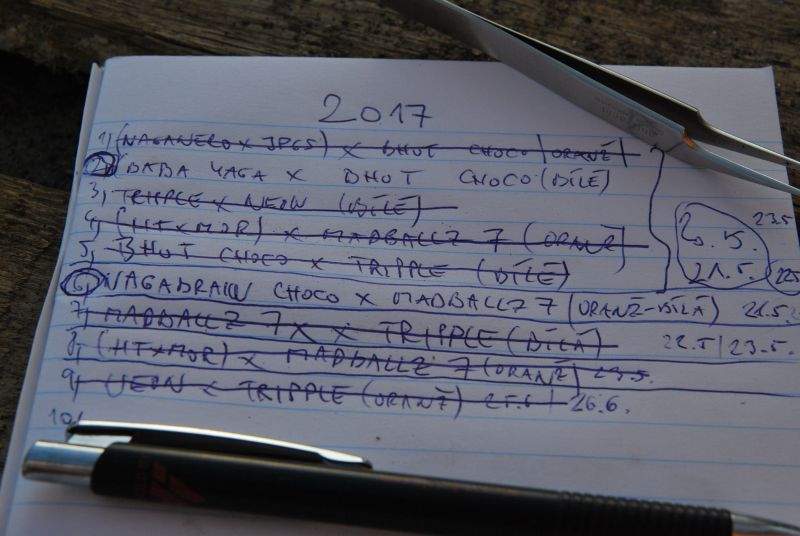 2017
1, (NAGANERO X JPGS) X BHOT CHOCO (ORANŽ)
2, BABA YAGA X BHOT CHOCO (BÍLÉ)
3, TRIPPLE X NEON (BÍLÉ)
4, (HTXMOR) X MADBALLZ 7 (ORANŽ)
20.5. 23.5
5, BHOT CHOCO X TRIPPLE (BÍLÉ)
21.5.
6, NAGABRAIN CHOCO X MADBALLZ 7 (ORANŽ-BÍLÁ) 21.5.
7, MADBALLZ 7 X X TRIPPLE (BÍLÁ) 22.5/23.5.
8, (HTXMOR) X MADBALLZ 7 (ORANŽ) 23.5.
9, NEON X TRIPPLE (ORANŽ) 25.6/26.6.
10,